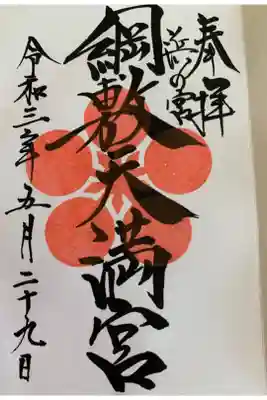 奉拝
浜の宮
綱敷天満宮
令和三年五月二十九日